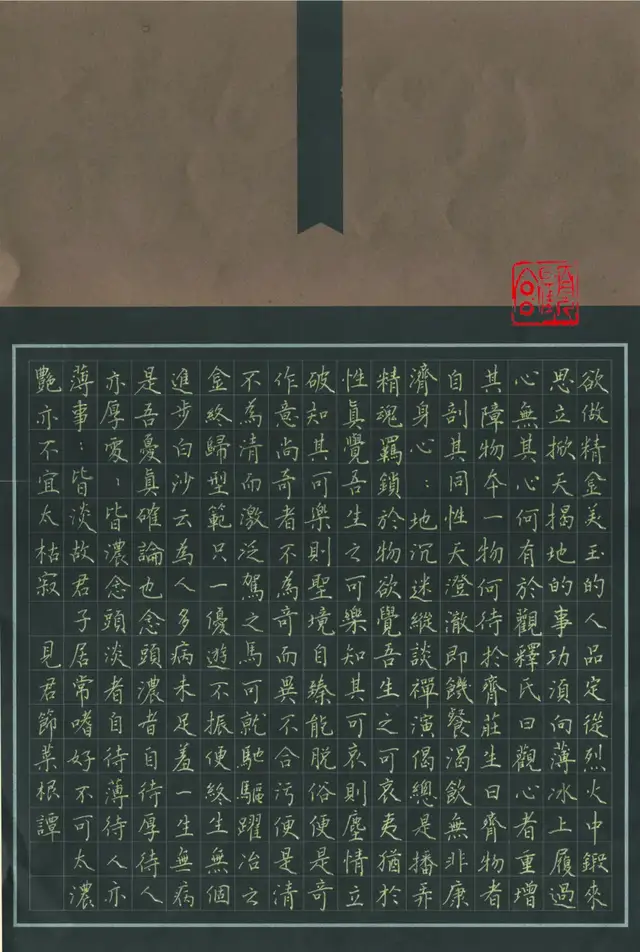 欲做精金美玉的人品定從烈火中鍛來
思立掀天揭地的事功須向薄冰上履過
心無其心何有於觀釋氏曰觀心者重增
其障物本一物何待於齊莊生曰齊物者
自剖其同性天澄澈即饑餐渴飲無非康
濟身心：地沉迷縱談禪演偈總是播弄
精魂羈鎖於物欲覺吾生之可哀夷猶於
性真覺吾生之可樂知其可哀則塵情立
破知其可樂則聖境自臻能脫俗便是奇
作意尚奇者不為奇而異不合污便是清
不為清而激泛駕之馬可就馳驅躍冶之
金終歸型範只一優遊不振便終生無個
進步白沙云為人多病未足羞一生無病
是吾憂真確論也念頭濃者自待厚待人
亦厚處：皆濃念頭淡者自待薄待人亦
薄事：皆淡故君子居常嗜好不可太濃
艷亦不宜太枯寂 見君節菜根譚